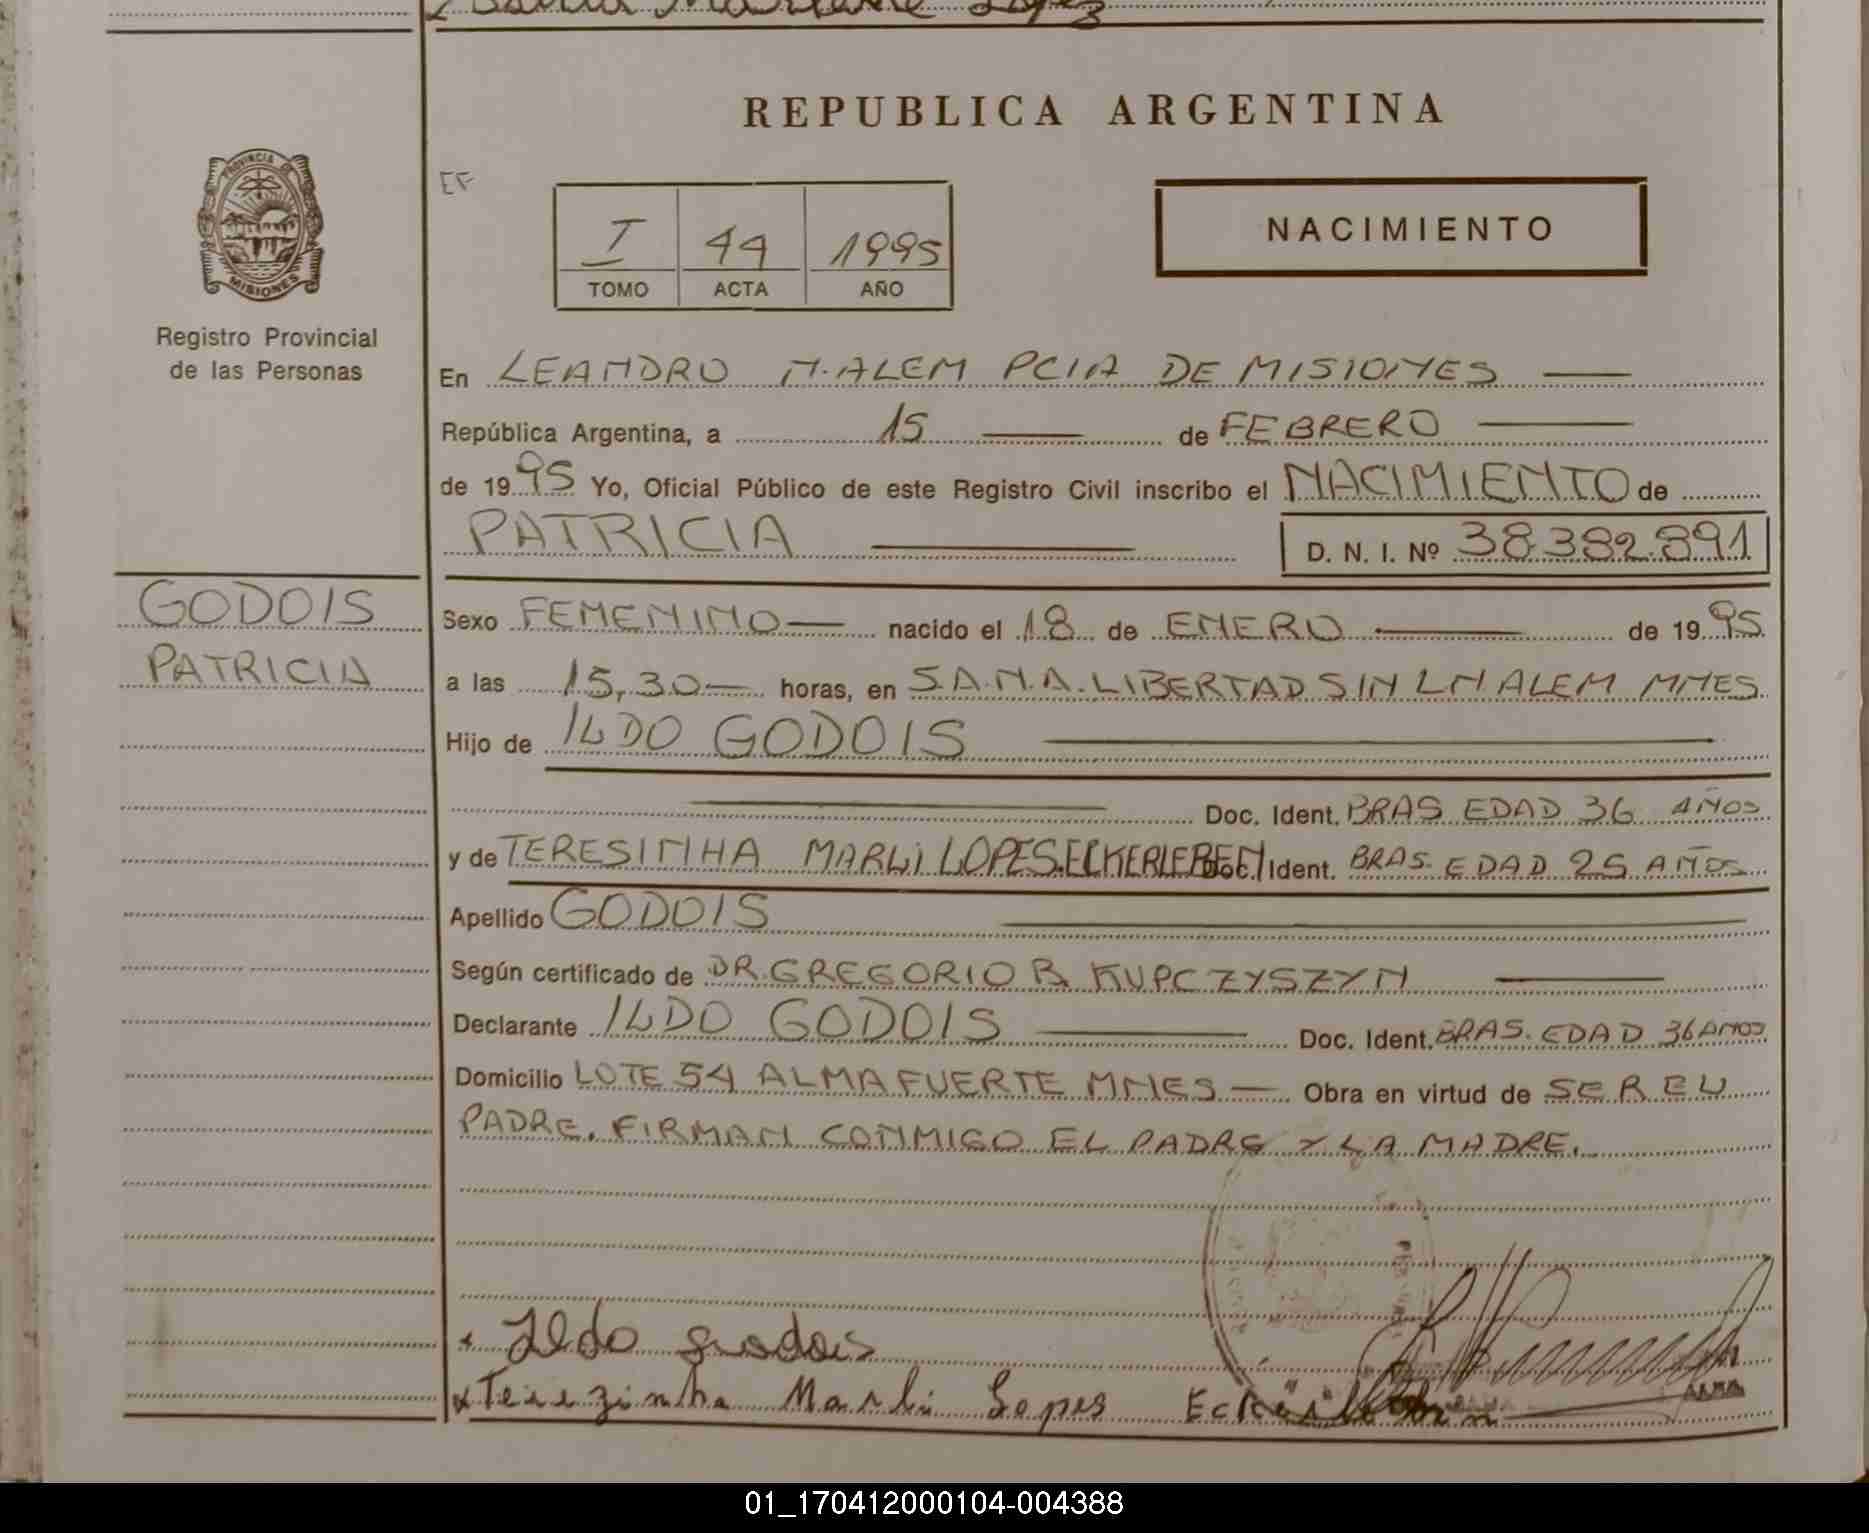 Marlene López
REPUBLICA ARGENTINA
PROVINCIA DE
MISIONES
Registro Provincial
de las Personas
EF
I 44 1995
TOMO ACTA AÑO
NACIMIENTO
En LEANDRO N. ALEM PCIA DE MISIONES
República Argentina, a 15 de FEBRERO
de 1995 Yo, Oficial Público de este Registro Civil inscribo el NACIMIENTO de
PATRICIA D. N. I. Nº 38.382.891
GODOIS
PATRICIA
Sexo FEMENINO nacido el 18 de ENERO de 1995
a las 15,30 horas, en S.A.N.A. LIBERTAD S/N L N ALEM MNES
Hijo de ILDO GODOIS
Doc. Ident. BRAS EDAD 36 AÑOS
y de TERESINHA MARLI LOPES.ECKERLEBEN Doc. Ident. BRAS. EDAD 25 AÑOS
Apellido GODOIS
Según certificado de DR. GREGORIO B. KUPCZYSZYN
Declarante ILDO GODOIS Doc. Ident. BRAS. EDAD 36 AÑOS
Domicilio LOTE 54 ALMAFUERTE MNES Obra en virtud de SER EL
PADRE. FIRMAN CONMIGO EL PADRE Y LA MADRE.
Ildo Godois
Terezinha Marli Lopes
01_170412000104-004388